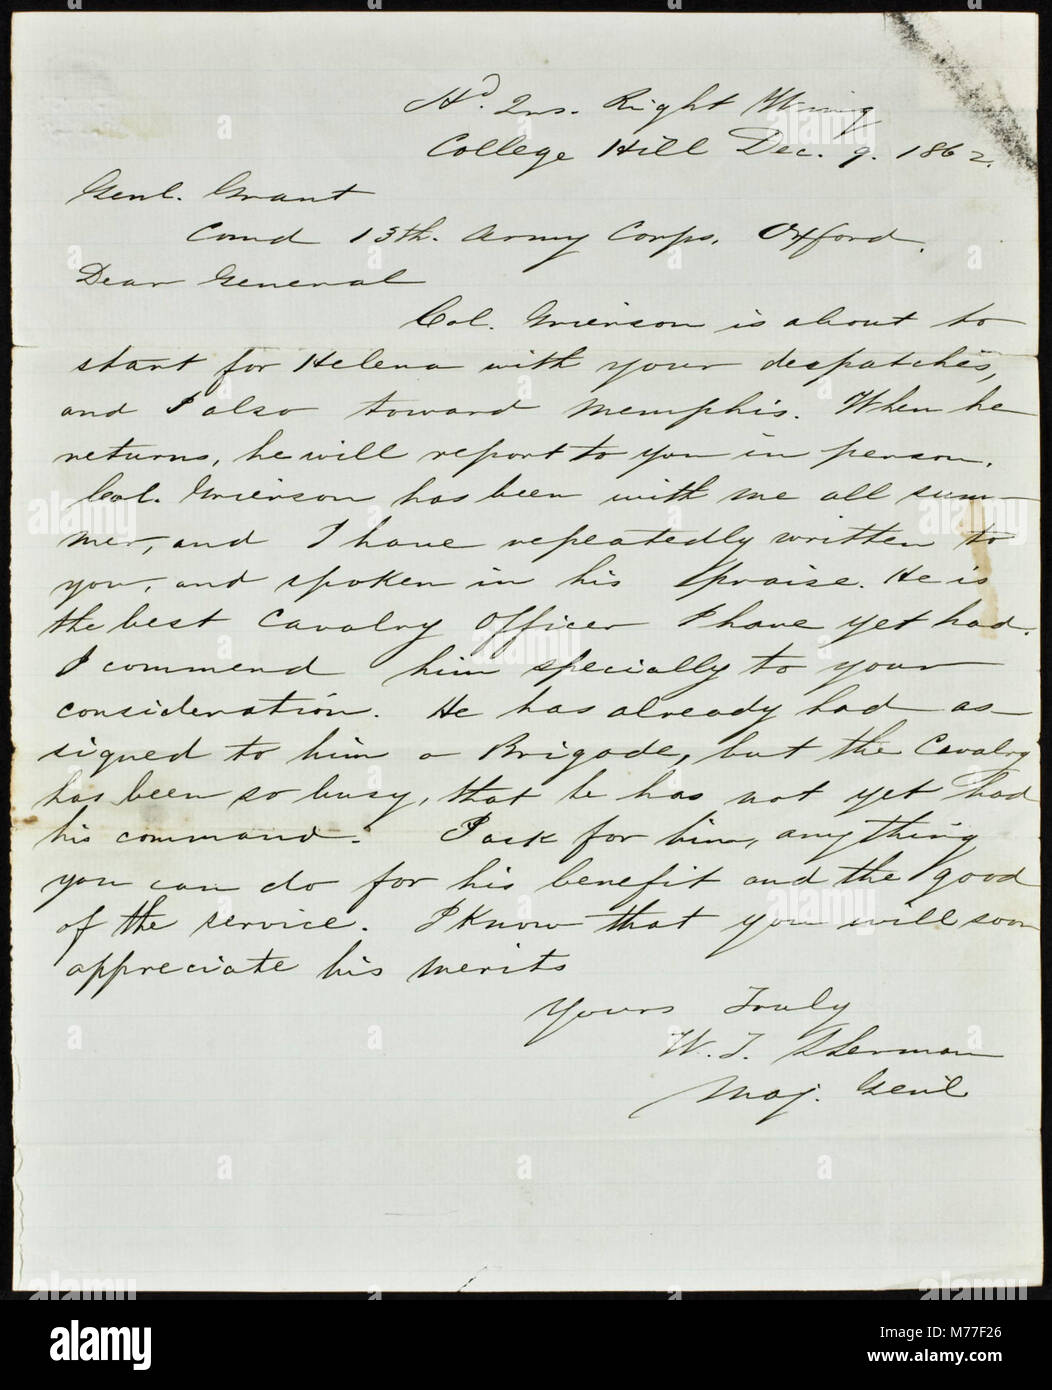 Hd. Qrs. Right Wing
College Hill Dec. 9. 1862.
Genl. Grant
Comd 13th. Army Corps. Oxford.
Dear General
Col. Grierson is about to
start for Helena with your despatches,
and I also toward Memphis. When he
returns, he will report to you in person.
Col. Grierson has been with me all sum-
mer, and I have repeatedly written to
you, and spoken in his praise. He is
the best Cavalry Officer I have yet had.
I commend him specially to your
consideration. He has already had as-
signed to him a Brigade, but the Cavalry
has been so busy, that he has not yet had
his command. I ask for him, anything
you can do for his benefit and the good
of the service. I Know that you will soon
appreciate his merits
Yours Truly
W. T. Sherman
Maj. Genl
alamy
a
alamy stock photo
M77F26
www.alamy.com